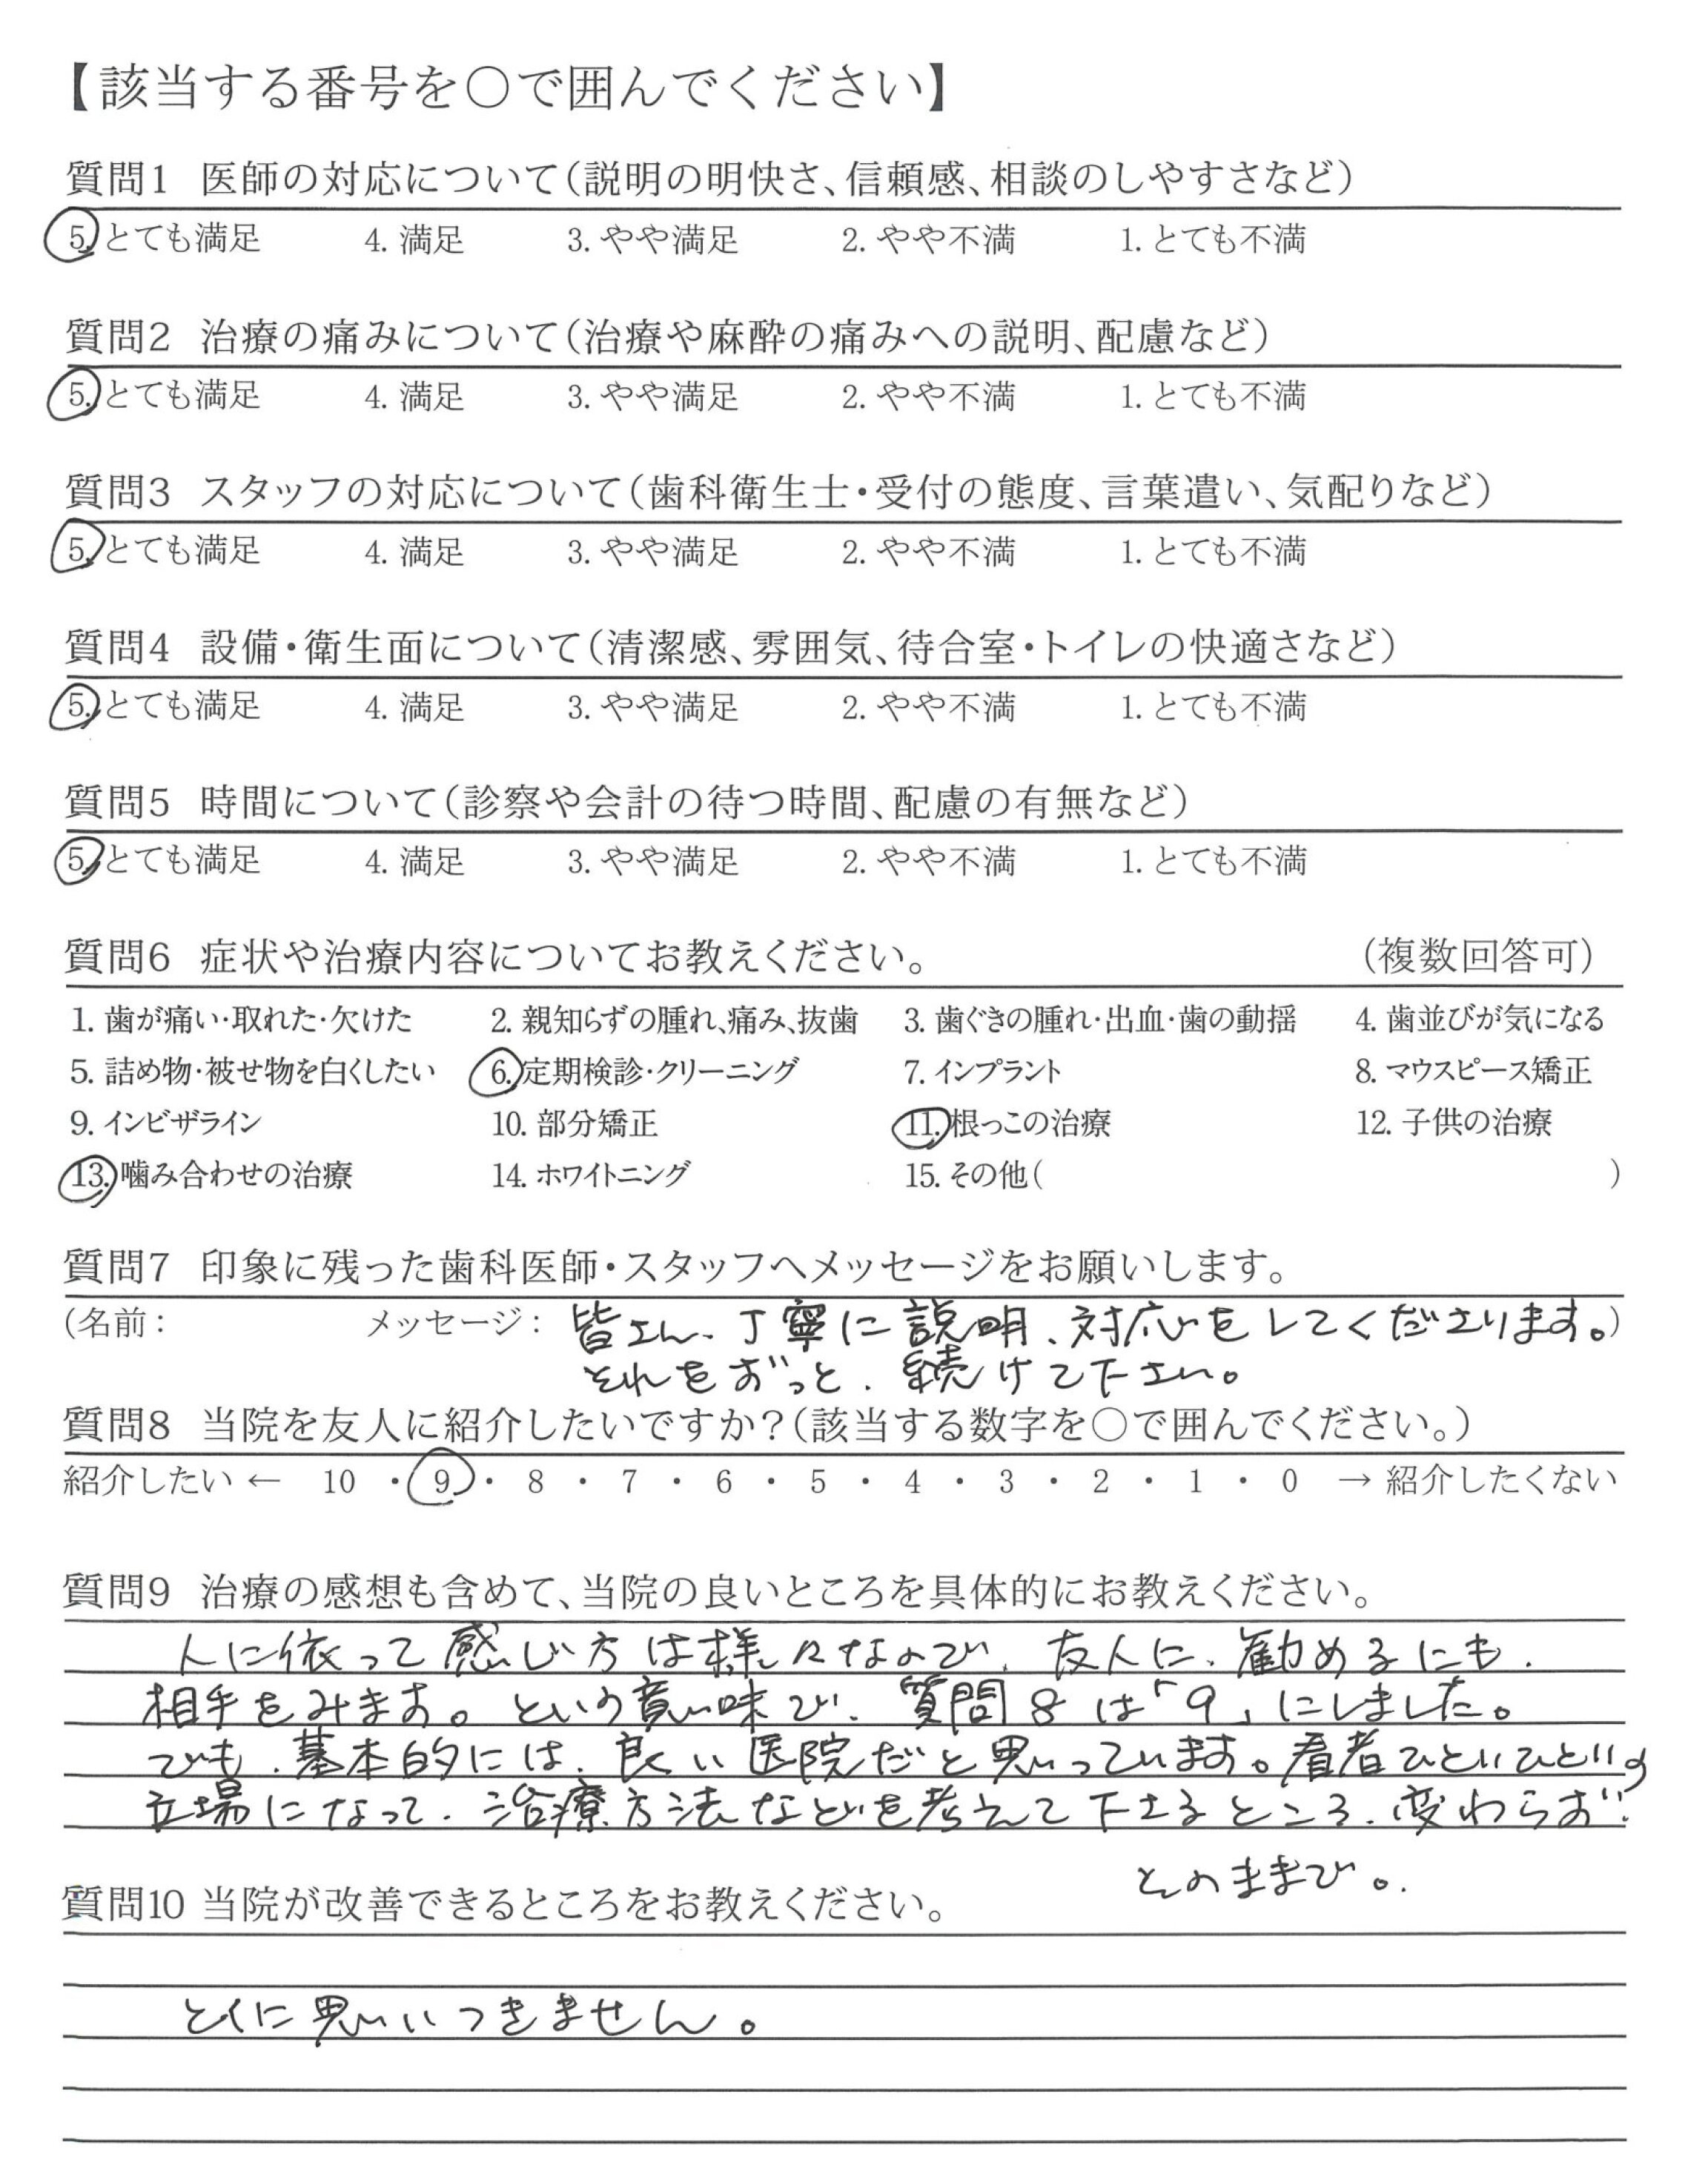 【該当する番号を○で囲んでください】
質問1 医師の対応について(説明の明快さ、信頼感、相談のしやすさなど)
5. とても満足 4. 満足 3. やや満足 2. やや不満 1. とても不満
質問2 治療の痛みについて(治療や麻酔の痛みへの説明、配慮など)
5. とても満足 4. 満足 3. やや満足 2. やや不満 1. とても不満
質問3 スタッフの対応について(歯科衛生士・受付の態度、言葉遣い、気配りなど)
5. とても満足 4. 満足 3. やや満足 2. やや不満 1. とても不満
質問4 設備・衛生面について(清潔感、雰囲気、待合室・トイレの快適さなど)
5. とても満足 4. 満足 3. やや満足 2. やや不満 1. とても不満
質問5 時間について(診察や会計の待つ時間、配慮の有無など)
5. とても満足 4. 満足 3. やや満足 2. やや不満 1. とても不満
質問6 症状や治療内容についてお教えください。 (複数回答可)
1. 歯が痛い・取れた・欠けた 2. 親知らずの腫れ、痛み、抜歯 3. 歯ぐきの腫れ・出血・歯の動揺 4. 歯並びが気になる
5. 詰め物・被せ物を白くしたい 6. 定期検診・クリーニング 7. インプラント 8. マウスピース矯正
9. インビザライン 10. 部分矯正 11. 根っこの治療 12. 子供の治療
13. 噛み合わせの治療 14. ホワイトニング 15. その他( )
質問7 印象に残った歯科医師・スタッフへメッセージをお願いします。
(名前: メッセージ: 皆さん、丁寧に説明、対応をしてくださります。)
それをずっと、続けて下さい。
質問8 当院を友人に紹介したいですか?(該当する数字を○で囲んでください。)
紹介したい ← 10 ・ 9 ・ 8 ・ 7 ・ 6 ・ 5 ・ 4 ・ 3 ・ 2 ・ 1 ・ 0 → 紹介したくない
質問9 治療の感想も含めて、当院の良いところを具体的にお教えください。
人に依って感じ方は様々なので、友人に、勧めるにも、
相手をみます。という意味で、質問8は「9」にしました。
でも、基本的には、良い医院だと思っています。看者ひとりひとりの
立場になって、治療方法などを考えて下さるところ、変わらず、
そのままで。
質問10 当院が改善できるところをお教えください。
とくに思いつきません。